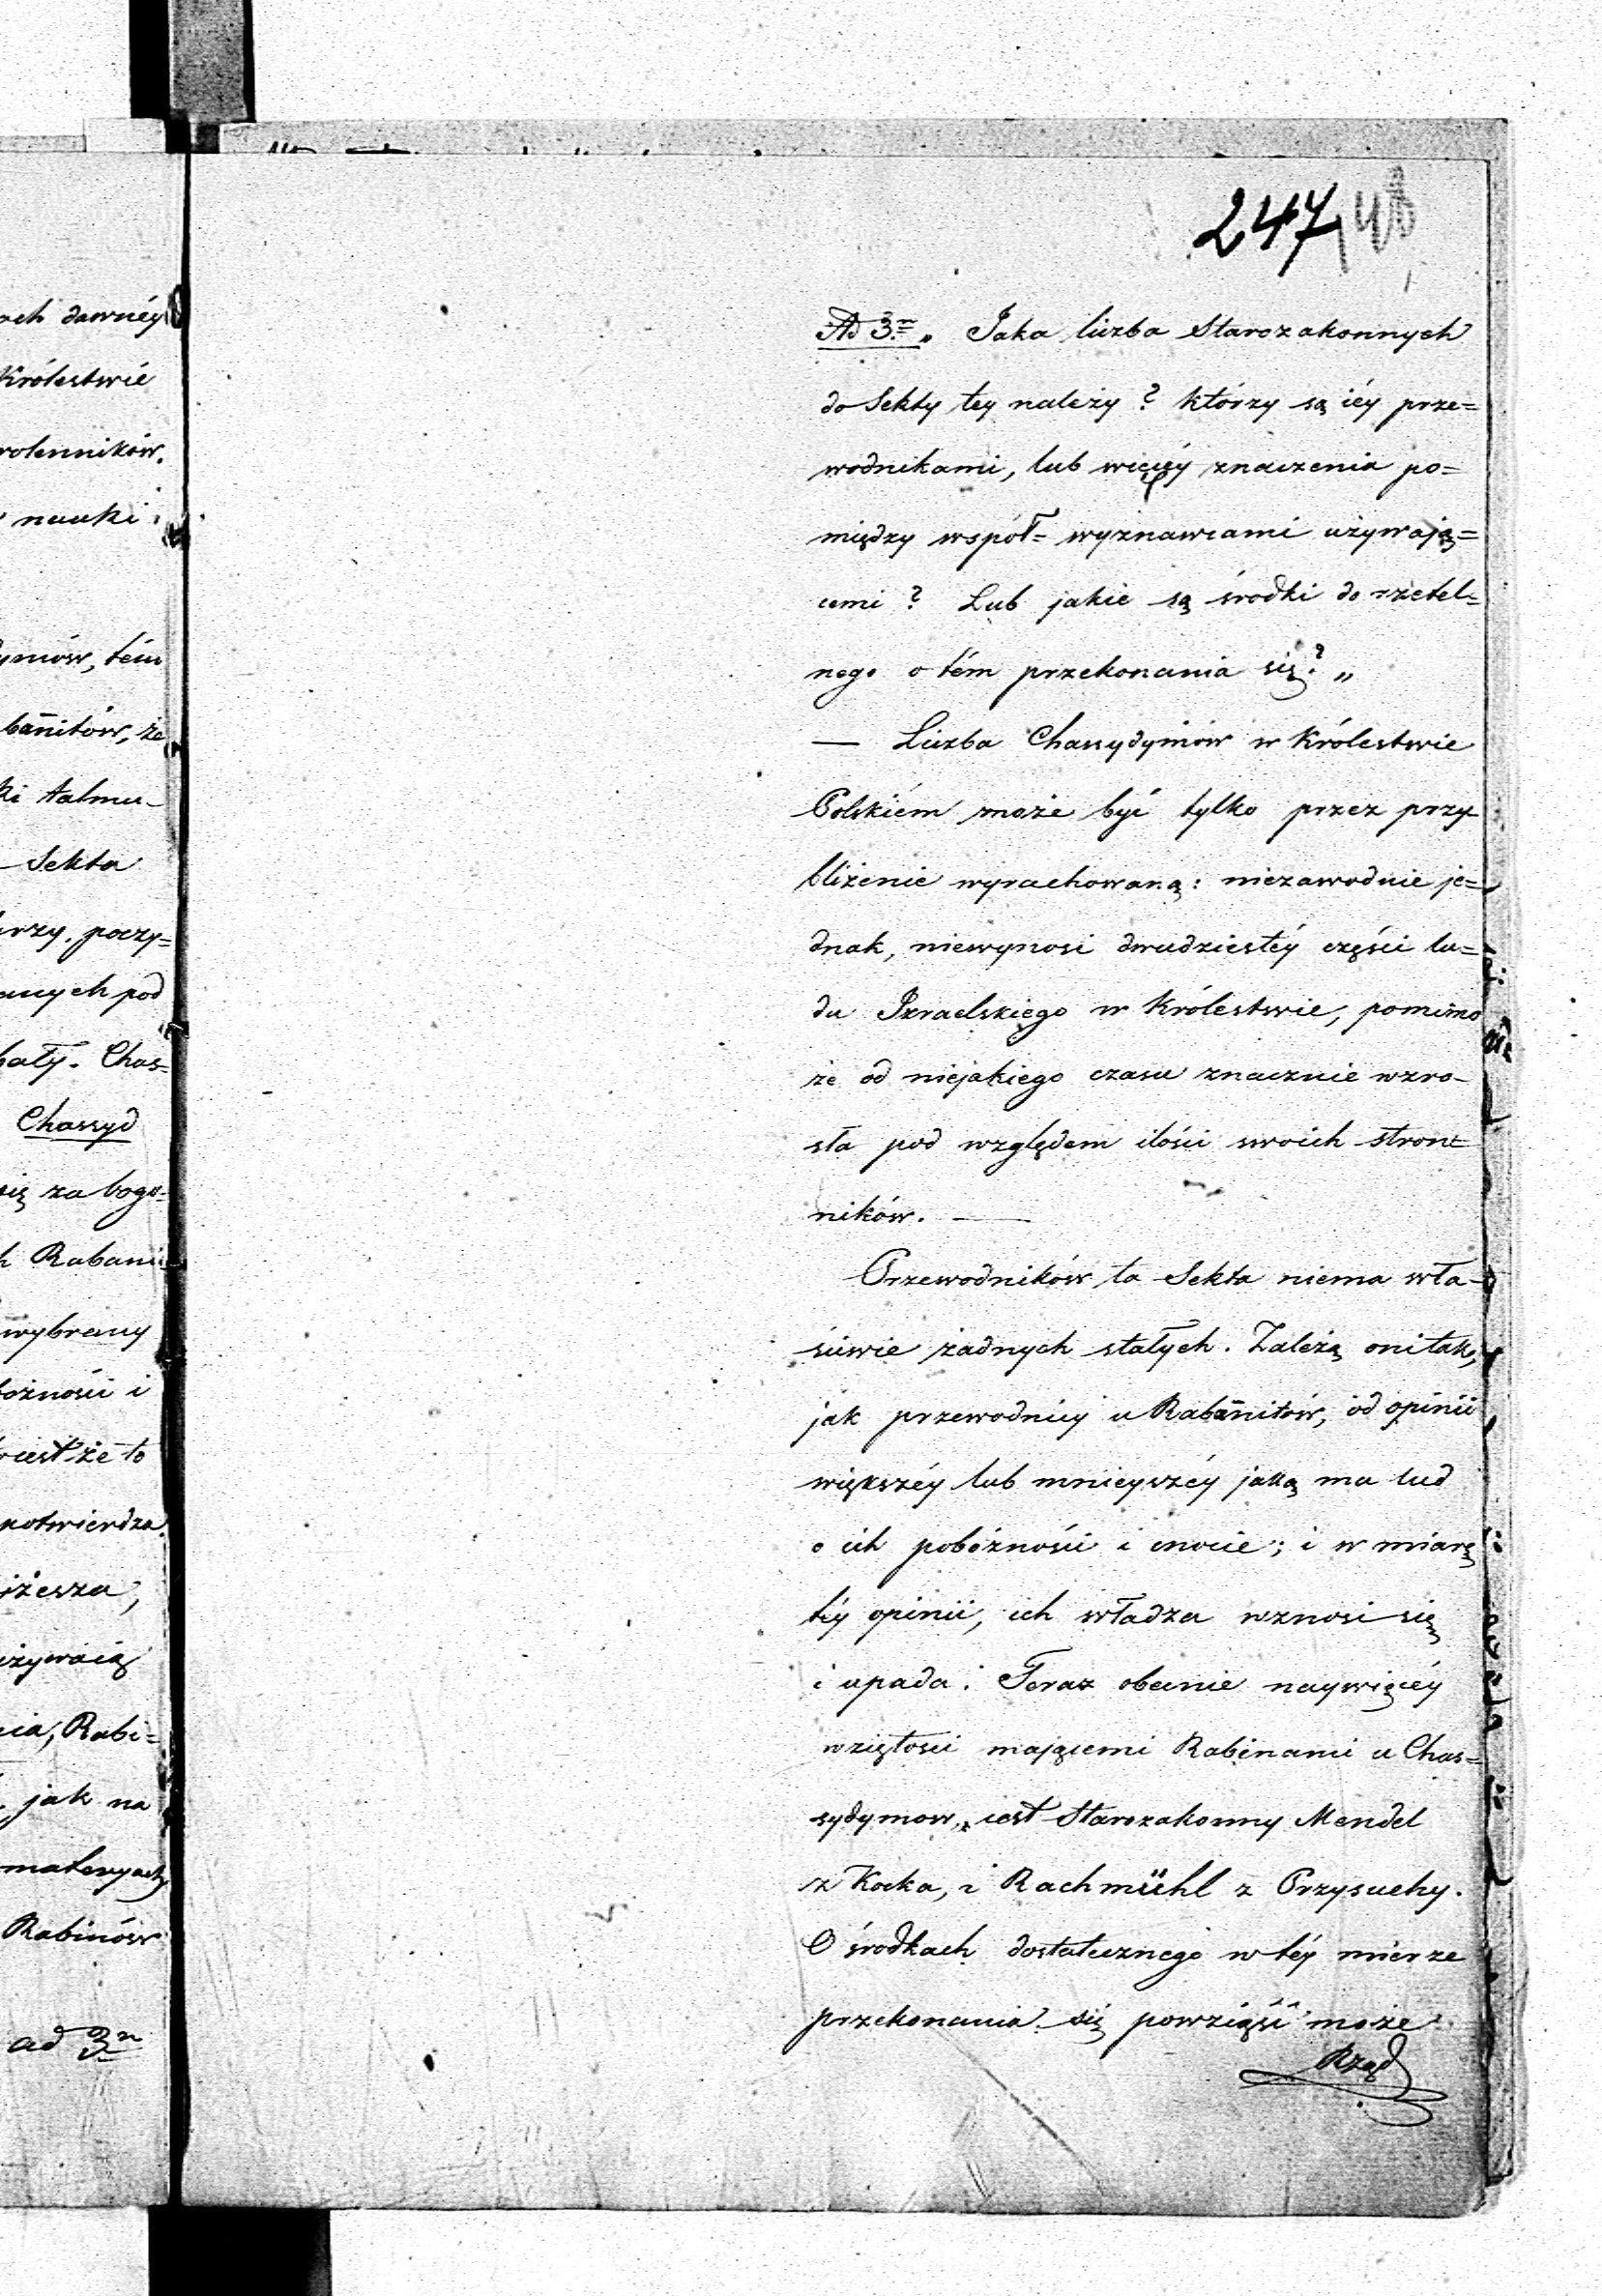 ach dawnéy
Królestwie
wolenników.
nauki
dymów, tém
banitów, że
ki talmu-
- Sekta
poczy=
anych pod
bały. Chas=
Chassyd
się za bogo=
h Rabani
wybrany
bożności i
iest że to
potwierdza
jżesza,
używaią
cia, Rabi=
jak na
materyach
Rabinów
ad 3m
247
Ad 3m „ Jaka liczba Starozakonnych
do Sekty tey należy? którzy są iéy prze=
wodnikami, lub więcéy znaczenia po=
między współ= wyznawcami używają=
cemi? Lub jakie są środki do rzetel=
nego o tém przekonania się? „
— Liczba Chassydymów w Królestwie
Polskiém może być tylko przez przy-
bliżenie wyrachowaną: niezawodnie je=
dnak, niewynosi dwudziestéy części lu=
du Izraelskiego w Królestwie, pomimo
że od niejakiego czasu znacznie wzro-
sła pod względem ilości swoich stron=
ników. —
Przewodników ta Sekta niema wła-
ściwie żadnych stałych. Zależą oni tak,
jak przewodnicy u Rabanitów, od opinii
większéy lub mnieyszéy jaką ma lud
o ich pobożności i cnocie; i w miarę
téy opinii, ich władza wznosi się
i upada. Teraz obecnie naywięcéy
wziętości mającemi Rabinami u Chas=
sydymow, iest Starozakonny Mendel
z Kocka, i Rachmühl z Przysuchy.
O środkach dostatecznego w téy mierze
przekonania się powziąść może
Rząd